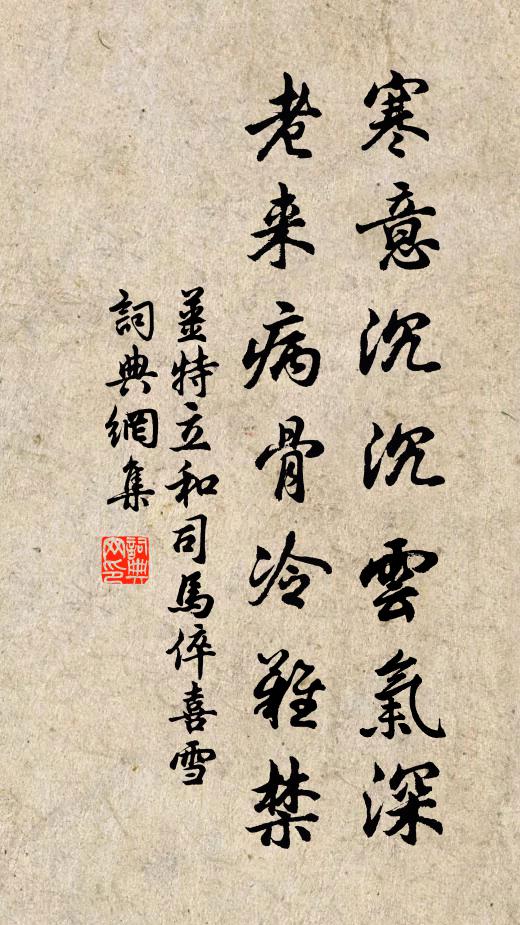 寒意沉沉雲氣深
老来病骨冷難禁
姜特立和司馬倅喜雪
詞典網集
詞典网印